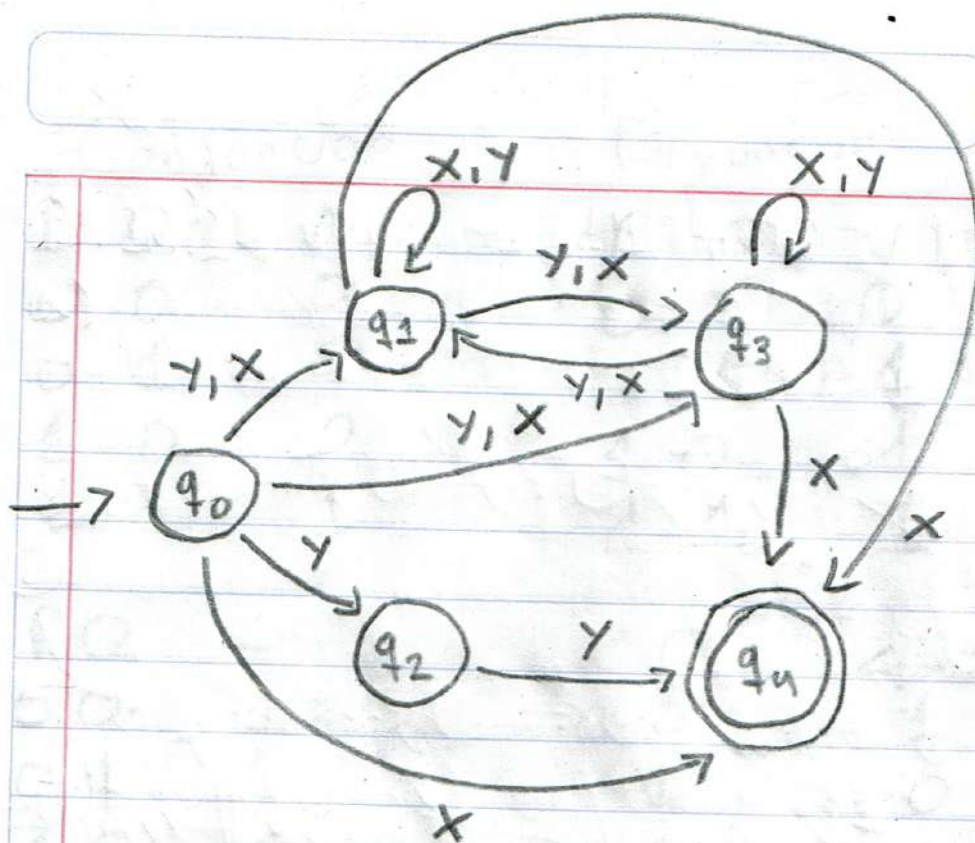 X, Y
X, Y
Y, X
q1
q3
Y, X
Y, X
Y, X
q0
X
X
Y
q2
Y
q4
X